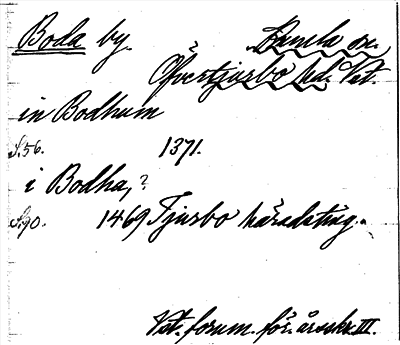 Boda by. Enåkla sn.
Övertjurbo hd. Vst.
in Bodhum
S. 56. 1371.
i Bodha,?
S. 90. 1469 Tjurbo häradsting.
Vst. fornm. för. årsskr. III.